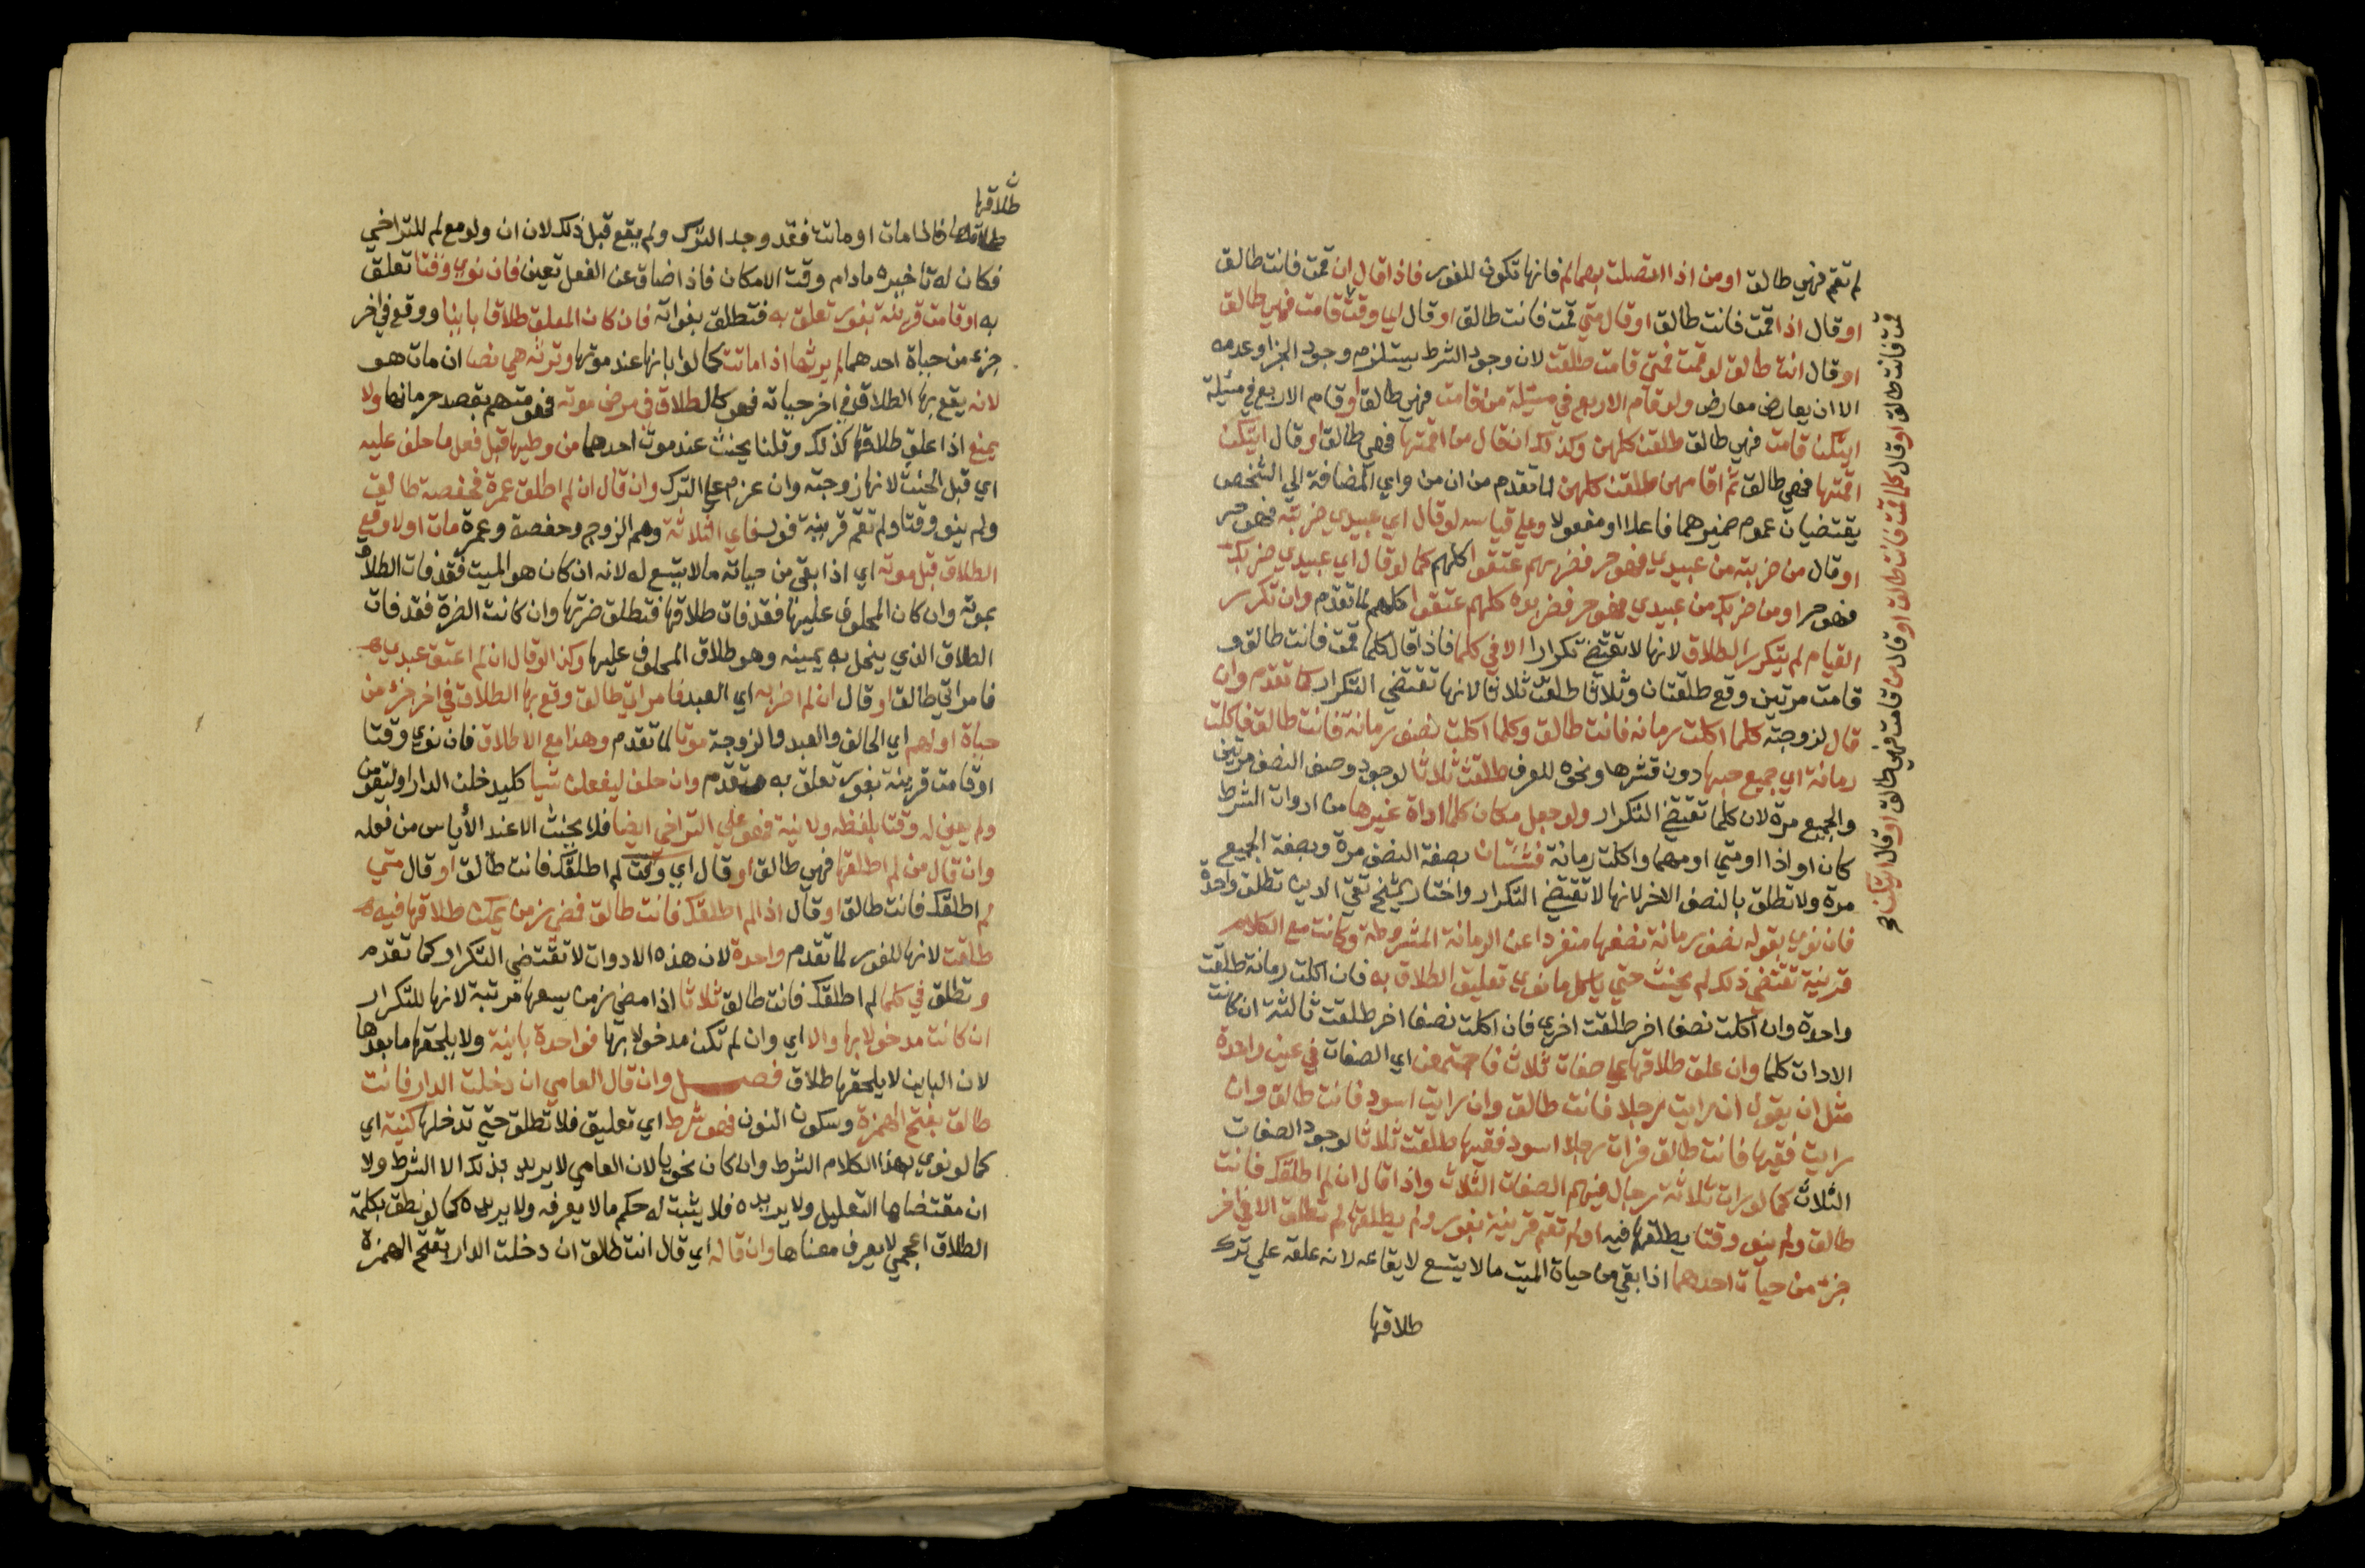 لم تقم فهي طالق او من اذا اتصلت بهما لم فانها تكون للفور فاذا قال ان قمت فانت طالق
او قال اذا قمت فانت طالق او قال متي قمت فانت طالق او قال اي وقت قامت فهي طالق
او قال انت طالق لو قمت فمتى قامت طلقت لان وجود الشرط يستلزم وجود الجزا وعدمه
الا ان يعارض معارض ولو قام الاربع في مسئلة من قامت فهي طالق او قام الاربع في مسئلة
ايتكن قامت فهي طالق طلقن كلهن وكذلك ان قال من اقمتها فهي طالق او قال ايتكن
اقمتها فهي طالق ثم اقامهن طلقن كلهن لما تقدم من ان من واي المضافة الي الشخص
يقتضيان عموم ضميرهما فاعلا او مفعولا وعلي قياسه لو قال اي عبيدي ضربته فهو حر
او قال من ضربته من عبيدي فهو حر فضربهم عتقوا كلهم كما لو قال اي عبيدي ضربك
فهو حر او من ضربك من عبيدي فهو حر فضربوه كلهم عتقوا كلهم لما تقدم وان تكرر
القيام لم يتكرر الطلاق لانها لا تقتضي تكرارا الا في كلما فاذا قال كلما قمت فانت طالق و
قامت مرتين وقع طلقتان وثلاثا طلقت ثلاثا لانها تقتضي التكرار كما تقدم وان
قال لزوجته كلما اكلت رمانه فانت طالق وكلما اكلت نصف رمانة فانت طالق فاكلت
رمانة اي جميع حبها دون قشرها ونحوه للعرف طلقت ثلاثا لوجود وصف النصف مرتين
والجميع مرة لان كلما تقتضي التكرار ولو جعل مكان كلما اداة غيرها من ادوات الشرط
كان او اذا او متي او مهما واكلت رمانة فثنتان بصفة النصف مرة وبصفة الجميع
مرة ولا تطلق بالنصف الاخر لانها لا تقتضي التكرار واختار الشيخ تقي الدين تطلق واحدة
فان نوي بقوله نصف رمانة نصفها منفردا عن الرمانة المشروطة وكانت مع الكلام
قرينة تقتضي ذلك لم يحنث حتي ياكل ما نوي تعليق الطلاق به فان اكلت رمانة طلقت
واحدة وان اكلت نصفا اخر طلقت اخري فان اكلت نصفا اخر طلقت ثالثة ان كانت
الادات كلما وان علق طلاقها علي صفات ثلاث فاجتمعن اي الصفات في عين واحدة
مثل ان يقول ان رايت رجلا فانت طالق وان رايت اسود فانت طالق وان
رايت فقيها فانت طالق فرات رجلا اسود فقيها طلقت ثلاثا لوجود الصفات
الثلاث كما لو رات ثلاثة رجال فيهم الصفات الثلاث واذا قال ان لم اطلقك فانت
طالق ولم ينو وقتا يطلقها فيه او لم تقم قرينة بفور ولم يطلقها لم تطلق الا في اخر
جزء من حيات احدهما اذا بقي من حياة الميت ما لا يتسع لايقاعه لانه علقه علي ترك
طلاقها
قمت فانت طالق او قال كلما قمت فانت طالق او قال من قامت فهي طالق او قال ايتكن
ن
طلاقها
طلاقها فاذا مات او ماتت فقد وجد الترك ولم يقع قبل ذلك لان ان ولو مع لم للتراخي
فكان له تاخيره مادام وقت الامكان فاذا ضاق عن الفعل تعين فان نوي وقتا تعلق
به او قامت قرينة بفور تعلق به فتطلق بفواته فان كان المعلق طلاقا باينا ووقع في اخر
جزء من حياة احدهما لم يرثها اذا ماتت كما لو ابانها عند موتها وترثه هي نصا ان مات هو
لانه يقع بها الطلاق في اخر حياته فهو كالطلاق في مرض موته فهو متهم بقصد حرمانها ولا
يمنع اذا علق طلاقها كذلك وقلنا يحنث عند موت احدهما من وطيها قبل فعل ما حلف عليه
اي قبل الحنث لانها زوجته وان عزم علي الترك وان قال ان لم اطلق عمرة فحفصة طالق
ولم ينو وقتا ولم تقم قرينة فور فاي الثلاثة وهم الزوج وحفصة وعمرة مات اولا وقع
الطلاق قبل موته اي اذا بقي من حياته ما لا يتسع له لانه ان كان هو الميت فقد فات الطلاق
بموته وان كان المحلوف عليها فقد فات طلاقها فتطلق ضرتها وان كانت الضرة فقد فات
الطلاق الذي ينحل به يمينه وهو طلاق المحلوف عليها وكذا لو قال ان لم اعتق عبدي
فامراتي طالق او قال ان لم اضربه اي العبد فامراتي طالق وقع بها الطلاق في اخر جزء من
حياة اولهم اي الحالف والعبد والزوجة موتا لما تقدم وهذا مع الاطلاق فان نوي وقتا
او قامت قرينة بفور تعلق به وتقدم وان حلف ليفعلن شيا كليدخلن الدار او ليقومن
ولم يعين له وقتا بلفظه ولا نية فهو علي التراخي ايضا فلا يحنث الا عند الأياس من فعله
وان قال من لم اطلقها فهي طالق او قال اي وقت لم اطلقك فانت طالق او قال متي
لم اطلقك فانت طالق او قال اذا لم اطلقك فانت طالق فمضي زمن يمكن طلاقها فيه
طلقت لانها للفور لما تقدم واحدة لان هذه الادوات لا تقتضي التكرار كما تقدم
وتطلق في كلما لم اطلقك فانت طالق ثلاثا اذا مضي زمن يسعها مرتبة لانها للتكرار
ان كانت مدخولا بها والا اي وان لم تكن مدخولا بها فواحدة باينة ولا يلحقها ما بعدها
لان الباين لا يلحقها طلاق فصل وان قال العامي ان دخلت الدار فانت
طالق بفتح الهمزة وسكون النون فهو شرط اي تعليق فلا تطلق حتي تدخلها كنية اي
كما لو نوي بهذا الكلام الشرط وان كان نحويا لان العامي لا يريد بذلك الا الشرط ولا
ان مقتضاها التعليل ولا يريده فلا يثبت له حكم ما لا يعرفه ولا يريده كما لو نطق بكلمة
الطلاق اعجمي لا يعرف معناها وان قاله اي قال انت طالق ان دخلت الدار بفتح الهمزة